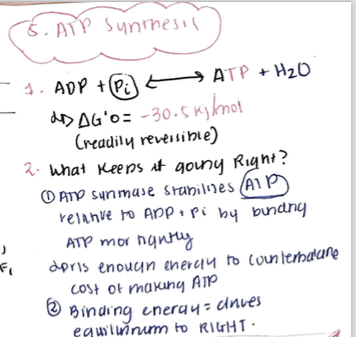 5. ATP Synthesis
1. ADP + Pi ⟷ ATP + H2O
↳ ΔG'o = -30.5 kJ/mol
(readily reversible)
2. What keeps it going Right?
① ATP synthase stabilises ATP
relative to ADP + Pi by binding
ATP mor tightly
enough energy to counterbalance
cost of making ATP
② Binding energy = drives
equilibrium to RIGHT.